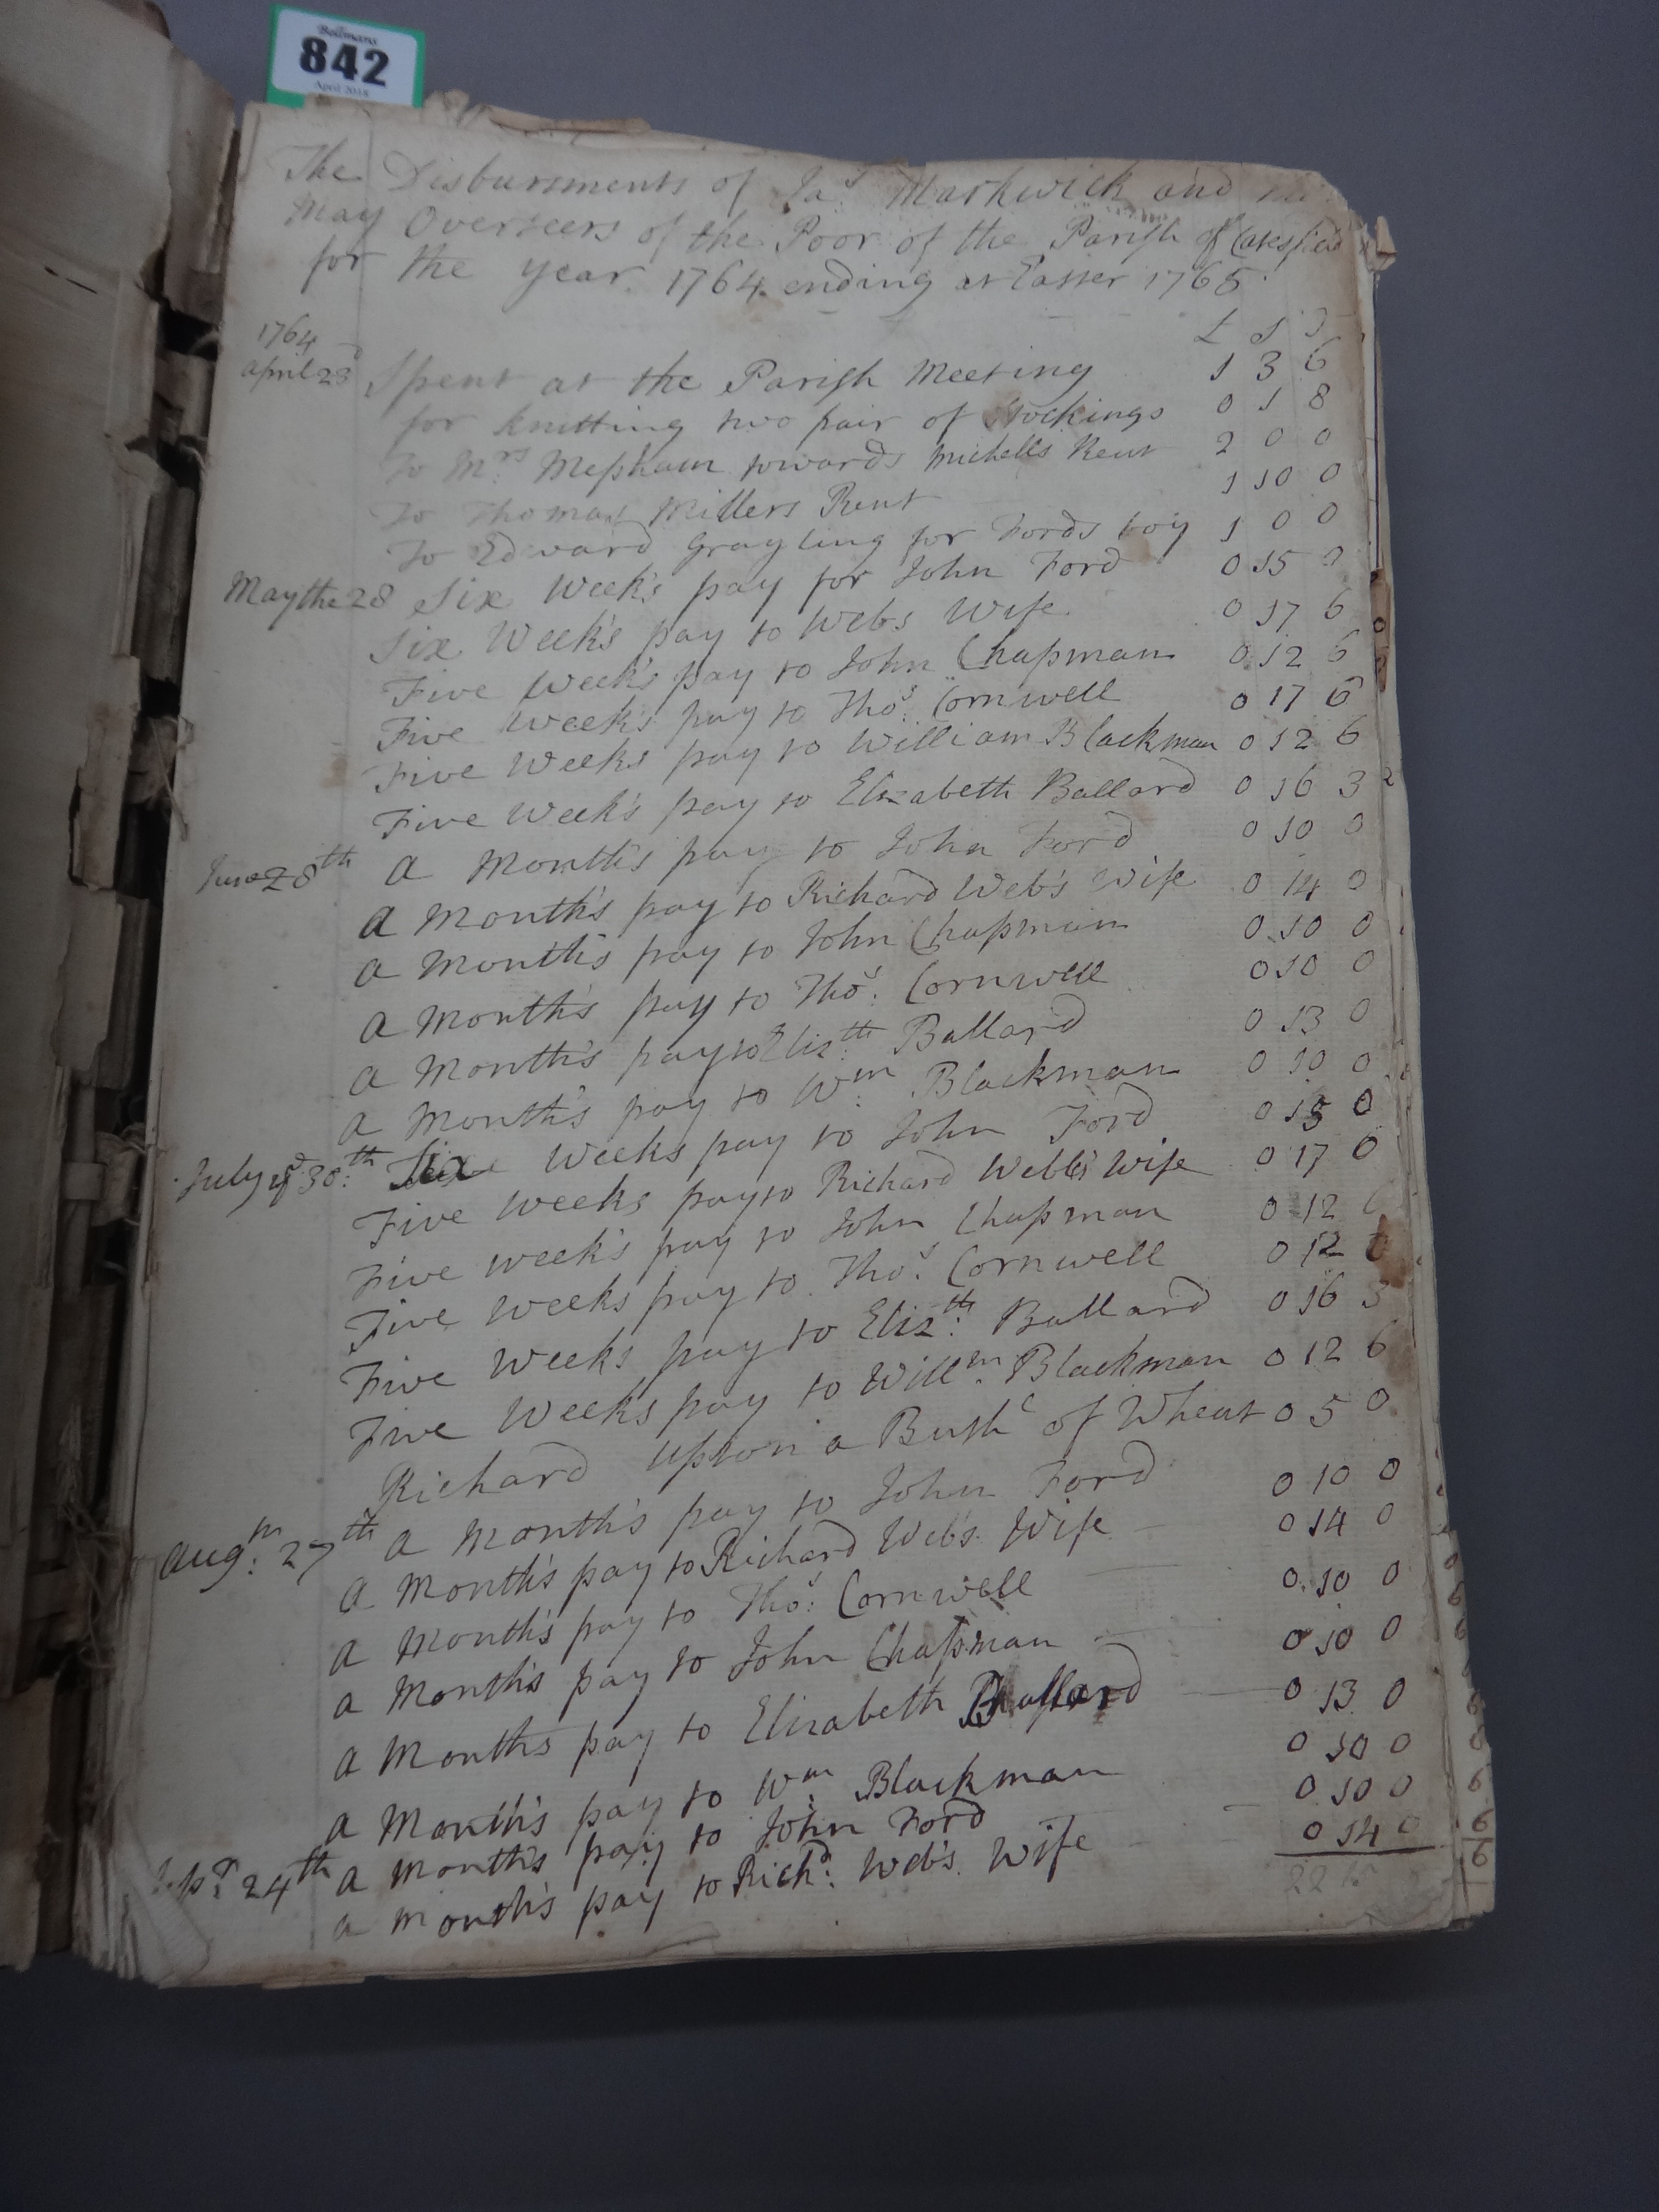 Bellmans
842
April 2018
The Disbursments of Jas Markwick and
May Overseers of the Poor of the Parish of
for the year 1764 ending at Easter 1765
£ s d
1764
april 23 Spent at the Parish Meeting 1 3 6
for knitting two pair of Stockings 0 1 8
To Mrs Mepham towards Michells Rent 2 0 0
To Thomas Millers Rent 1 10 0
To Edward Grayling for Fords boy 1 0 0
May the 28 Six Week's pay for John Ford 0 15
Six Week's pay to Webs Wife 0 17 6
Five Week's pay to John Chapman 0 12 6
Five Week's pay to Thos: Cornwell 0 17 6
Five Weeks pay to William Blackman 0 12 6
Five Week's pay to Elizabeth Ballard 0 16 3
June 28th a Month's pay to John Ford 0 10 0
a Month's pay to Richard Web's Wife 0 14 0
a Month's pay to John Chapman 0 10 0
a Month's pay to Thos: Cornwell 0 10 0
a Month's pay to Elizth: Ballard 0 13 0
a Month's pay to Wm: Blackman 0 10 0
July ye 30:th Six Weeks pay to John Ford 0 15 0
Five Weeks pay to Richard Webb's Wife 0 17 0
Five week's pay to John Chapman 0 12
Five Weeks pay to Thos: Cornwell 0 12
Five Weeks pay to Elizth: Ballard 0 16 3
Five Week's pay to Willm: Blackman 0 12 6
Richard Upton a Bushl of Wheat 0 5 0
Augm: 27th a Month's pay to John Ford 0 10 0
a Month's pay to Richard Web's Wife 0 14 0
a Month's pay to Thos: Cornwell 0 10 0
a Month's pay to John Chapman 0 10 0
a Month's pay to Elizabeth Ballard 0 13 0
a Month's pay to Wm: Blackman 0 10 0
24th a Month's pay to John Ford 0 10 0
a Month's pay to Richd: Web's Wife 0 14 0